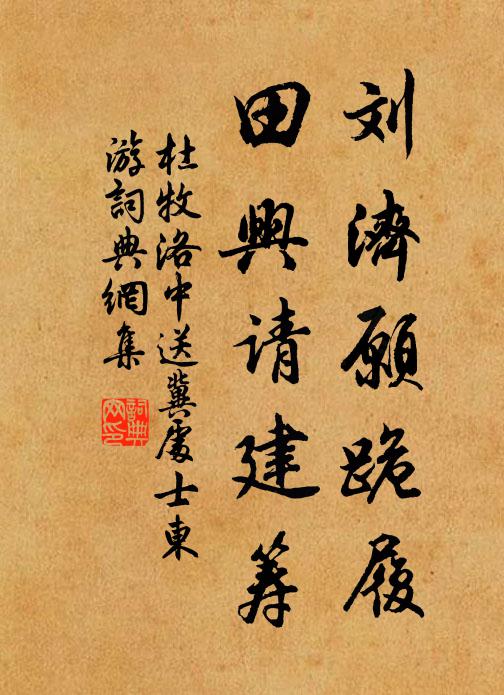 刘濟願跪履
田興请建筹
杜牧洛中送冀處士東
游詞典網集
詞典
网印